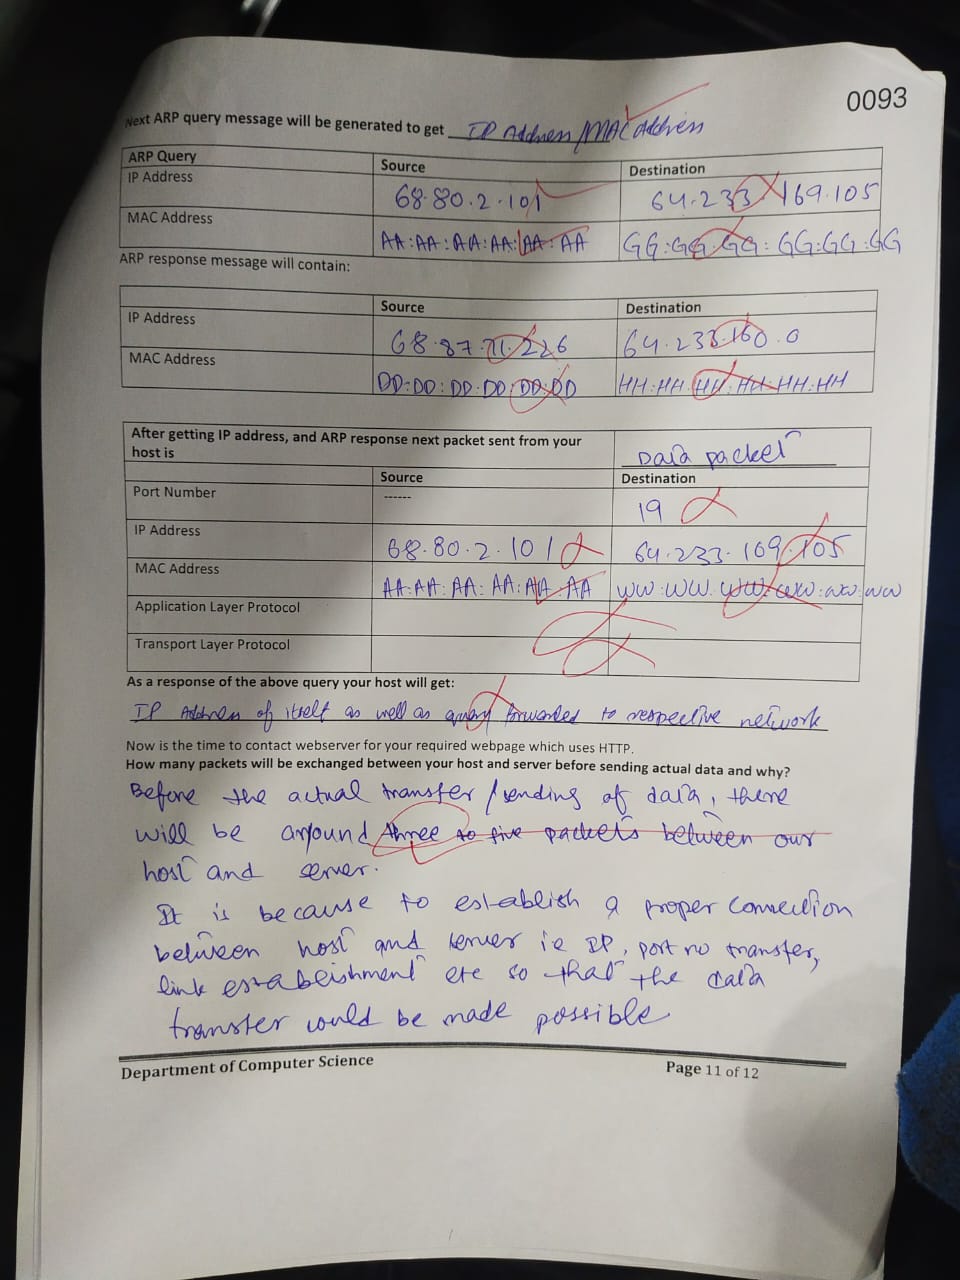 0093
Next ARP query message will be generated to get IP Address/MAC Address
ARP Query Source Destination
IP Address 68.80.2.101 64.233.169.105
MAC Address AA:AA:AA:AA:AA:AA GG:GG:GG:GG:GG:GG
ARP response message will contain:
Source Destination
IP Address 68.87.71.226 64.233.160.0
MAC Address DD:DD:DD:DD:DD:DD HH:HH:HH:HH:HH:HH
After getting IP address, and ARP response next packet sent from your
host is Data packet
Source Destination
Port Number ------ 19
IP Address 68.80.2.101 64.233.169.105
MAC Address AA:AA:AA:AA:AA:AA WW:WW:WW:WW:WW:WW
Application Layer Protocol
Transport Layer Protocol
As a response of the above query your host will get:
IP Address of itself as well as query forwarded to respective network
Now is the time to contact webserver for your required webpage which uses HTTP.
How many packets will be exchanged between your host and server before sending actual data and why?
Before the actual transfer/sending of data, there
will be around three to five packets between our
host and server.
It is because to establish a proper connection
between host and server ie IP, port no transfer,
link establishment etc so that the data
transfer would be made possible
Department of Computer Science Page 11 of 12